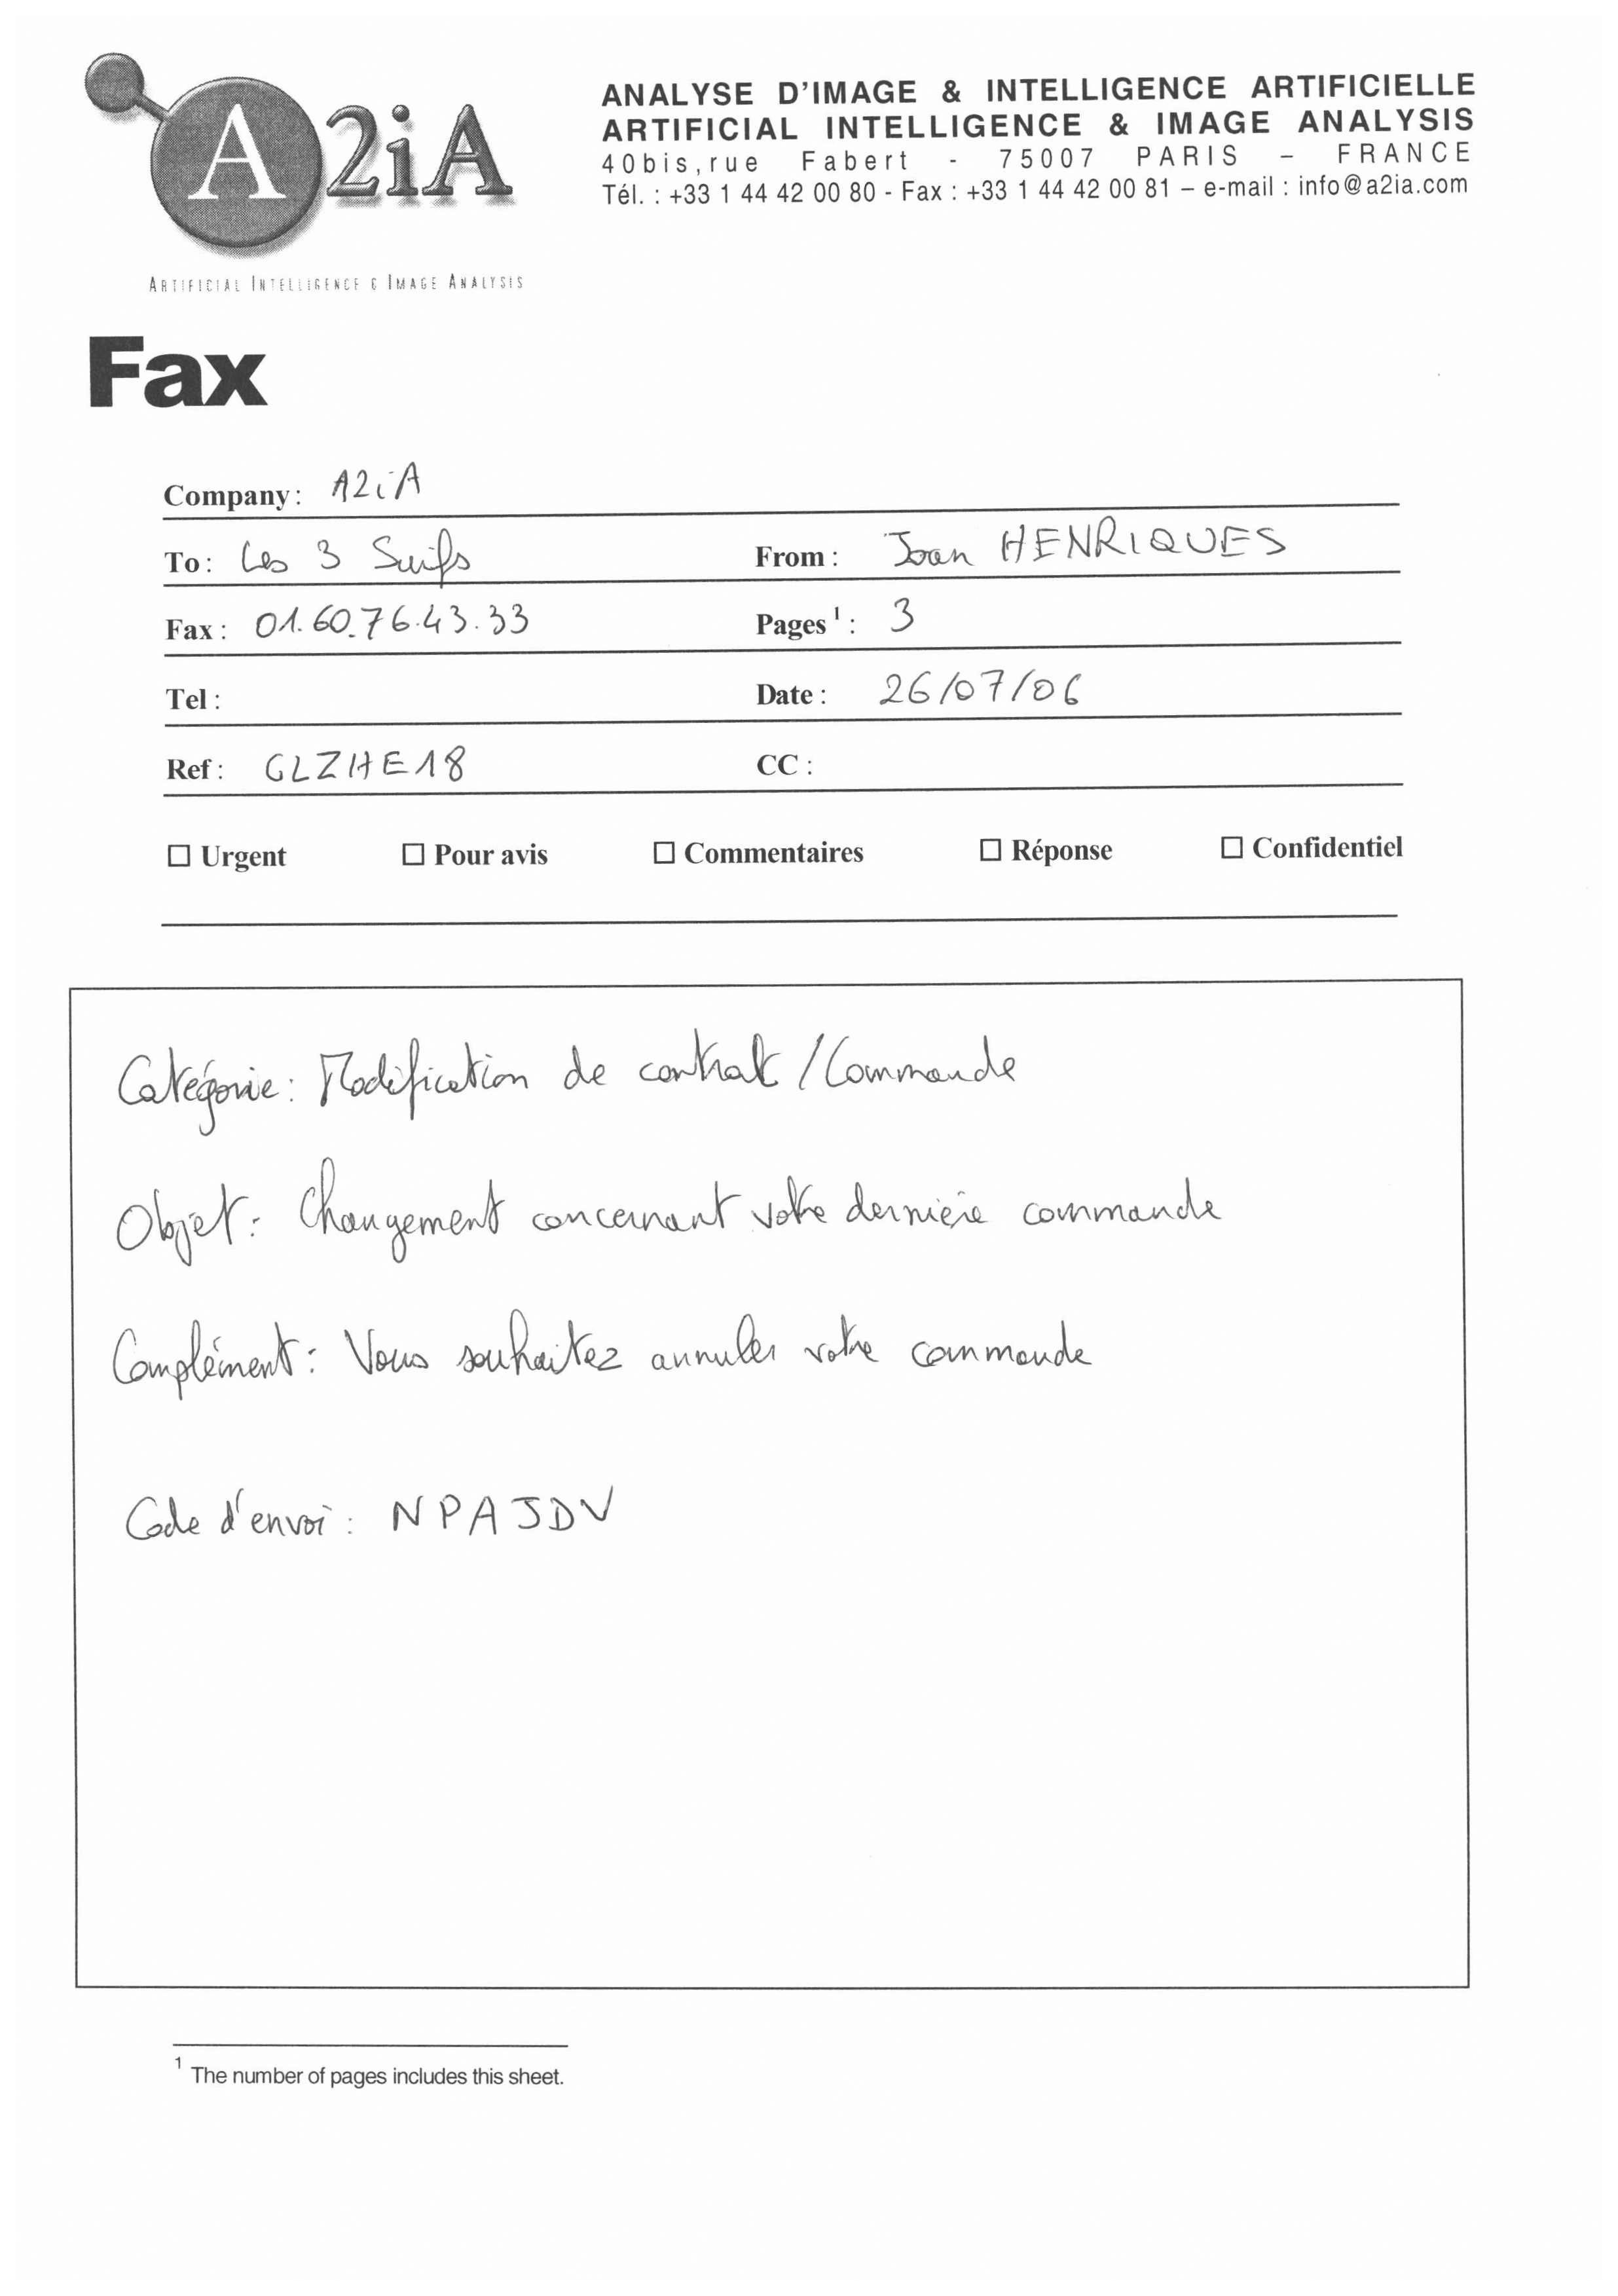 A2iA
ARTIFICIAL INTELLIGENCE & IMAGE ANALYSIS
ANALYSE D'IMAGE & INTELLIGENCE ARTIFICIELLE
ARTIFICIAL INTELLIGENCE & IMAGE ANALYSIS
40bis,rue Fabert - 75007 PARIS – FRANCE
Tél. : +33 1 44 42 00 80 - Fax : +33 1 44 42 00 81 – e-mail : info@a2ia.com
Fax
Company: A2iA
To: Les 3 Suifs From: Joan HENRIQUES
Fax: 01.60.76.43.33 Pages ¹: 3
Tel: Date: 26/07/06
Ref: GLZHE18 CC:
☐ Urgent ☐ Pour avis ☐ Commentaires ☐ Réponse ☐ Confidentiel
Catégorie: Modification de contrat / Commande
Objet: Changement concernant votre dernière commande
Complément: Vous souhaitez annuler votre commande
Code d'envoi: NPAJDV
¹ The number of pages includes this sheet.